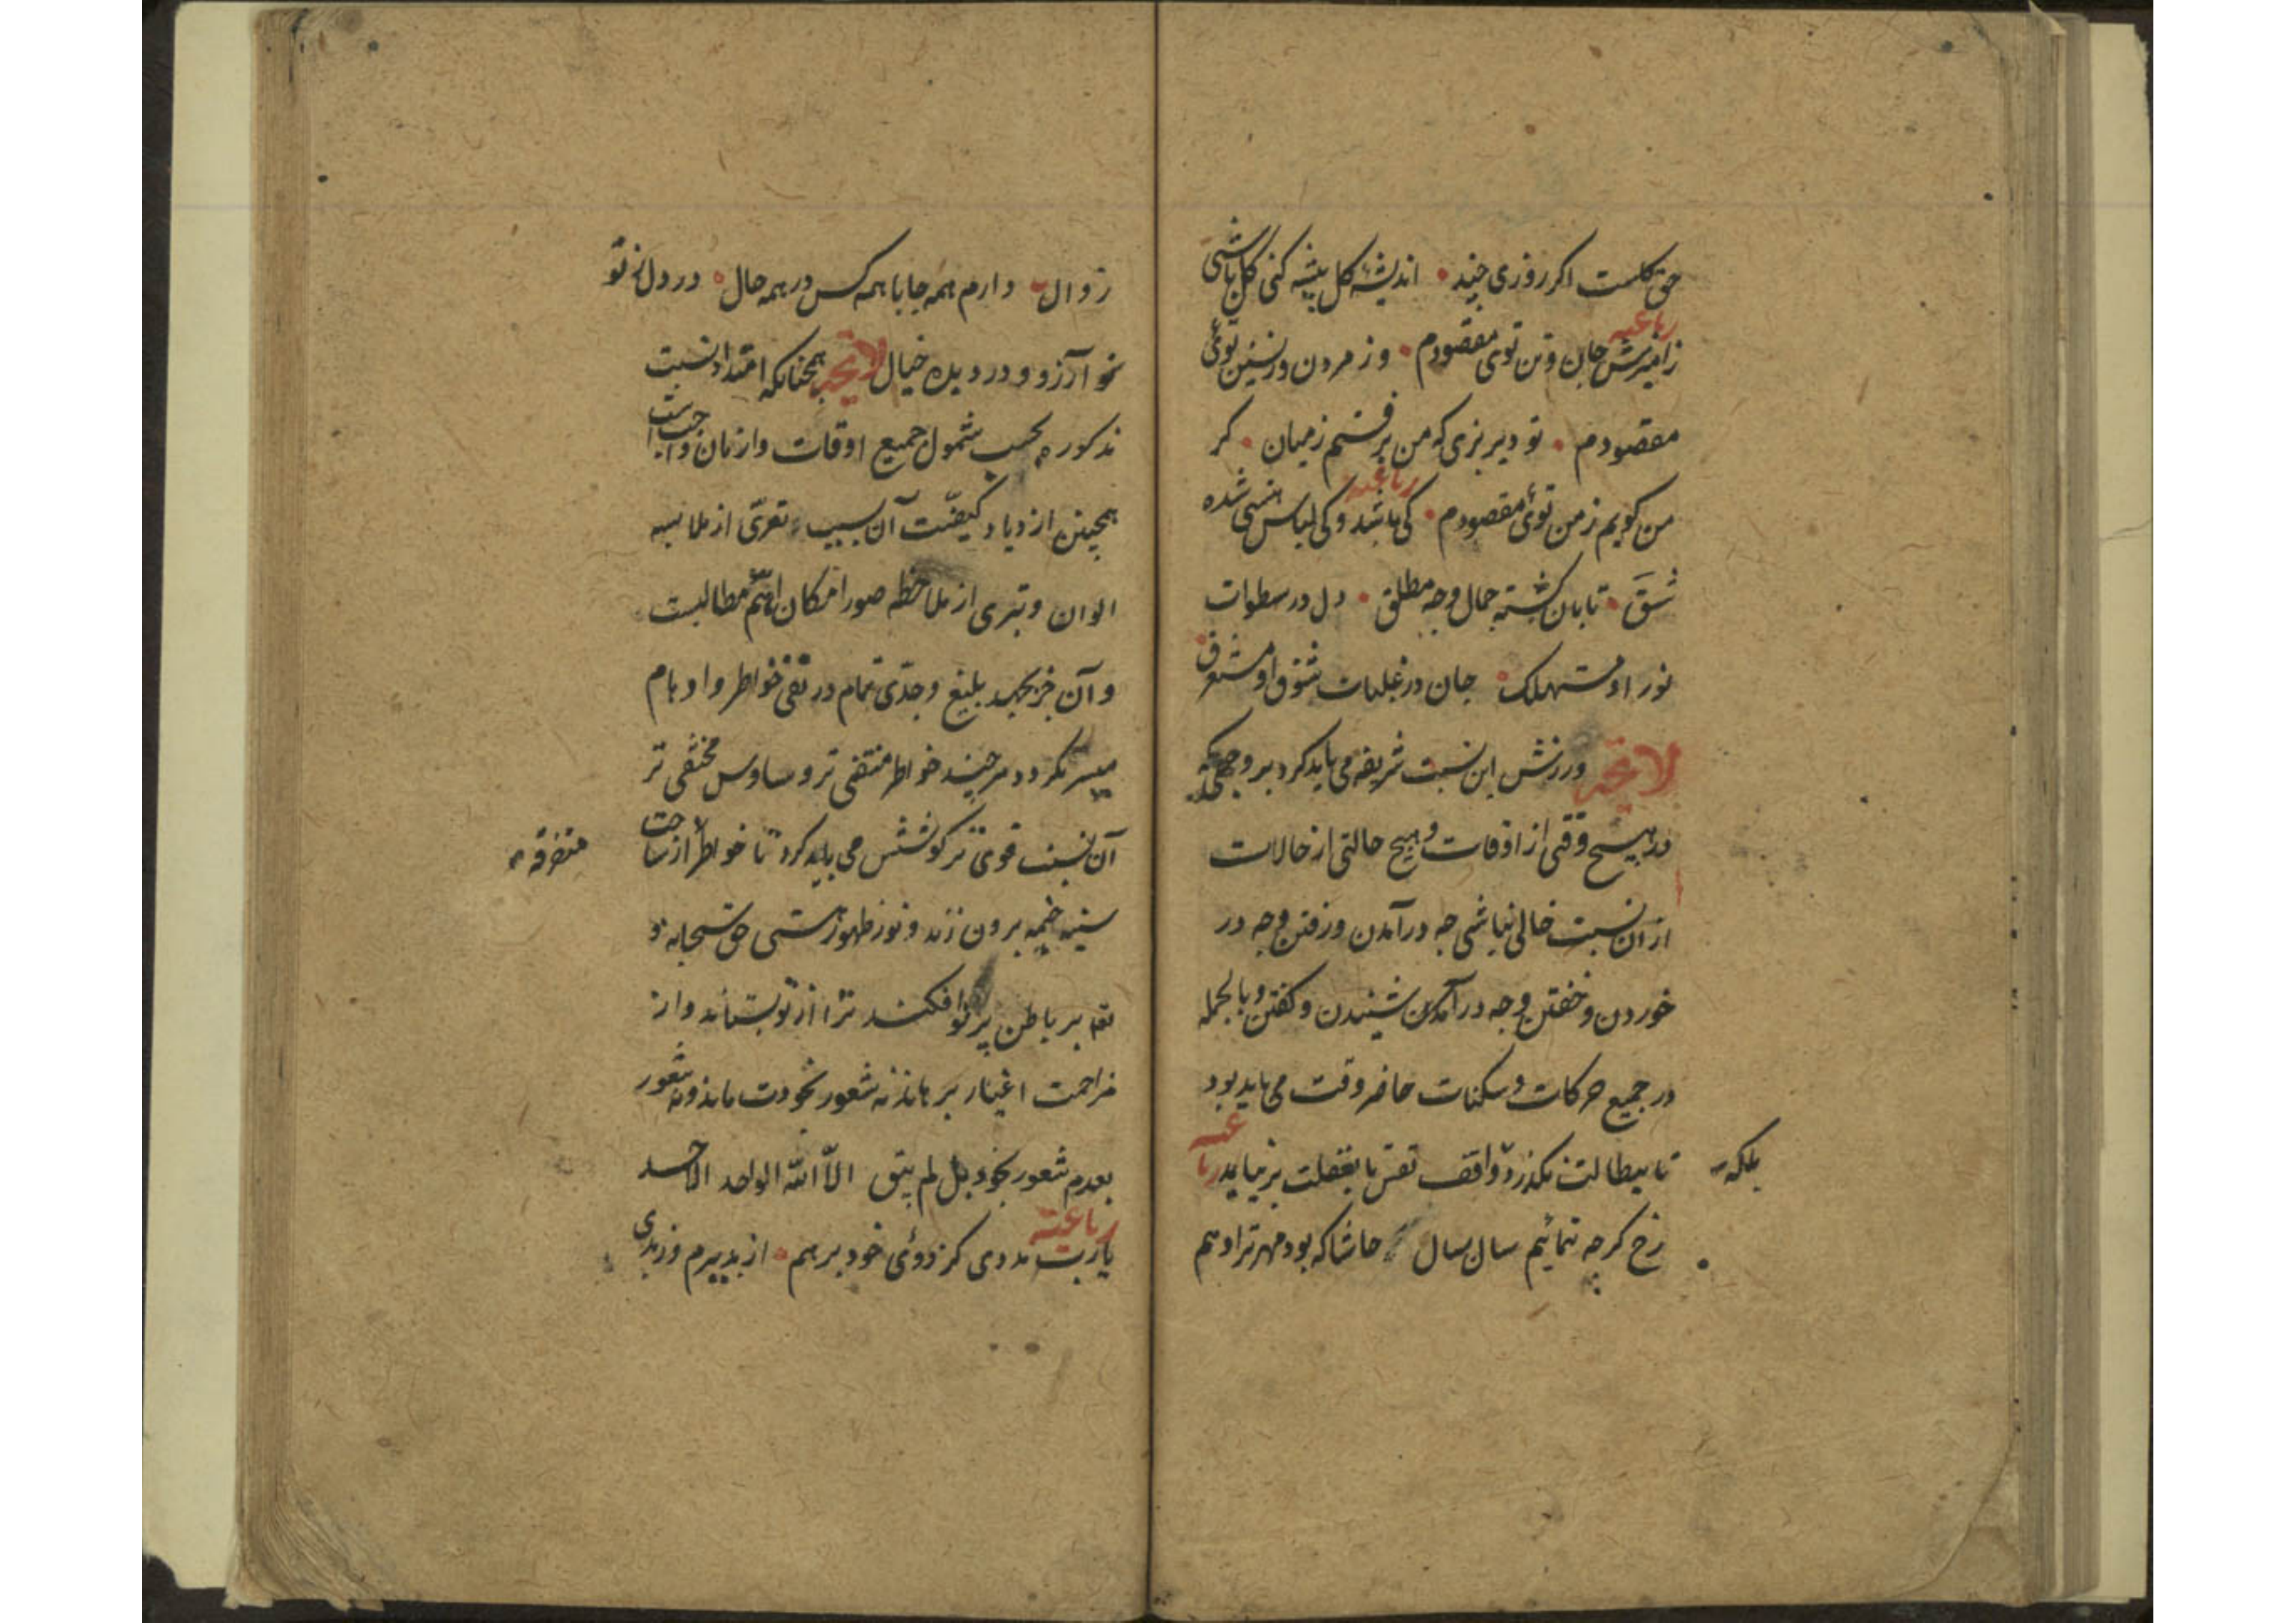 حق کلست اکر روزی چند اندیشهٔ کل پیشه کنی کل باشی
رباعیه
زامیزش جان و تن توی مقصودم وز مردن و زیستن توئی
مقصودم تو دیر بزی که من برفتم ز میان کر
من کویم ز من توئی مقصودم رباعیه کی باشد و کی لباس هستی شده
شق تابان کشته جمال وجه مطلق دل در سطوات
نور او مستهلک جان در غلبات شوق او مستغرق
لایحه ورزش این نسبت شریفه می باید کرد بر وجهی که
در هیچ وقتی از اوقات و هیچ حالتی از حالات
ازان نسبت خالی نباشی چه در آمدن و رفتن و چه در
خوردن و خفتن و چه در شنیدن و کفتن و بالجمله
در جمیع حرکات و سکنات حاضر وقت می باید بود
تا ببطالت نکذرد واقف نفس تا بغفلت برنیاید رباعیه
بلکه
رخ کرچه نمائیم سال بسال حاشا که بود مهر ترا وهم
زوال دارم همه جا با همه کس در همه حال در دل ز تو
آرزو و در دیده خیال لایحه همچنانکه امتداد نسبت
مذکوره بحسب شمول جمیع اوقات و ازمان واجبست
همچنین ازدیاد کیفیت آن بسبب تعری از ملابسه
الوان و تبری از ملاحظه صور امکان اهم مطالبست
و آن جز بجهد بلیغ و جدی تمام در نفی خواطر و اوهام
میسر نکردد هر چند خواطر منتفی تر و وساوس مختفی تر
آن نسبت قوی تر کوشش می باید کرد تا خواطر از ساحت
متفرقه
سینه خیمه برون زند و نور ظهور هستی حق سبحانه و
تعه بر باطن پرتو افکند ترا از تو بستاند و از
مزاحمت اغیار برهاند نه شعور بخودت ماند و نه شعور
بعدم شعور بخود بل لم یبق الا الله الواحد الاحد
رباعیه
یارب مددی کز دوئی خود برهم از بد ببرم وز بدی